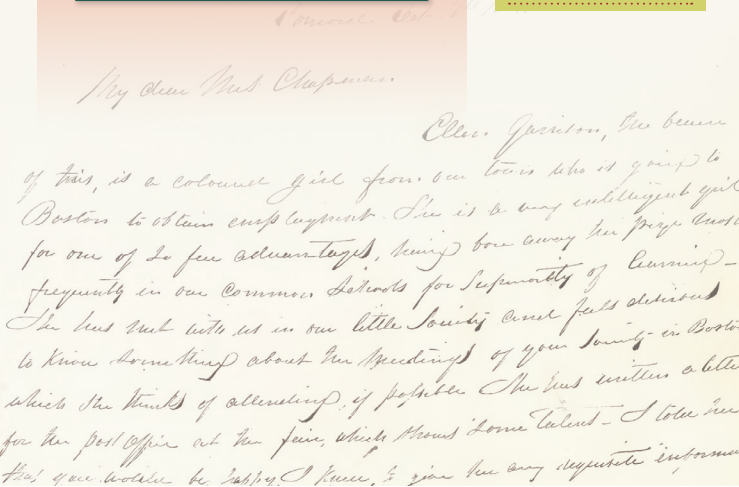 Concord Oct.
My dear Mrs Chapman.
Ellen Garrison, the bearer
of this, is a coloured girl from our town who is going to
Boston to obtain employment. She is a very intelligent girl
for one of so few advantages, having bore away the prize most
frequently in our common schools for superiority of learning -
She has met with us in our little Society and feels desirous
to know something about the meetings of your Society in Boston
which she thinks of attending, if possible She has written a letter
for the post office at the fair, which shows some talent - I told her
that you would be happy, I knew, to give her any requisite informa